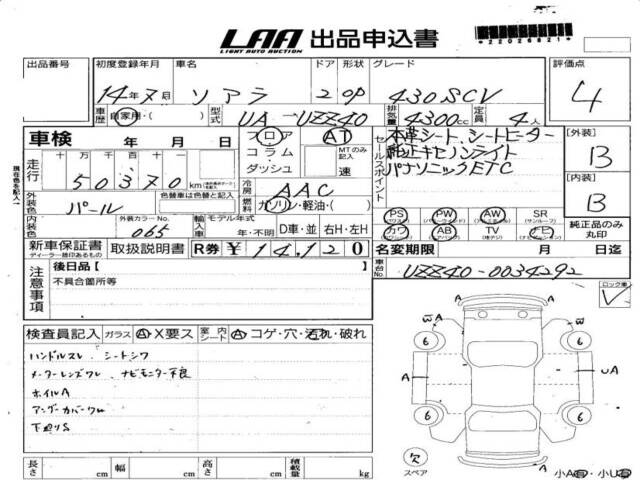 LAA 出品申込書
LIGHT AUTO AUCTION
*22026821*
出品番号 初度登録年月 車名 ドア 形状 グレード 評価点
14年7月 ソアラ 2 OP 430SCV 4
車歴 自家用・( ) 型式 UA-UZZ40 排気量 4300cc 定員 4人
車検 年 月 日 フロア AT 本革シート、シートヒーター [外装]
コラム MTのみ記入 純正キセノンライト B
ダッシュ 速 パナソニックETC
セールスポイント
走行 十 万 千 百 十 一
50370km
冷房 AAC [内装]
外装色 パール 色替車は色替と記入 燃料 ガソリン・軽油・( ) B
PS PW AW SR
(パワステ) (パワーウィンド) (アルミホイール) (サンルーフ)
内装色 外装カラーNo. 065 輸入車 モデル年式 年・不明 D車・並 右H・左H
カワ AB TV ナビ 純正品のみ丸印
(革シート) (エアバッグ) (テレビ) (ナビ)
新車保証書 取扱説明書 R券 ¥14,120 名変期限 月 日迄
ディーラー捺印あるもの
車台No. UZZ40-0034292
注意事項 後日品[ ]
不具合箇所等
ロック車
検査員記入 ガラス A・X要ス 室内シート A・コゲ・穴・汚れ・破れ
ハンドルスレ、シートシワ
メーターレンズワレ、ナビモニター不良
ホイルA
アンダーカバーワレ
下廻りS
A
W A A W
6 6
A A UA
6 6
欠
スペア
小A有・小U有
長さ cm 幅 cm 高さ cm 積載量 kg
現在色を記入